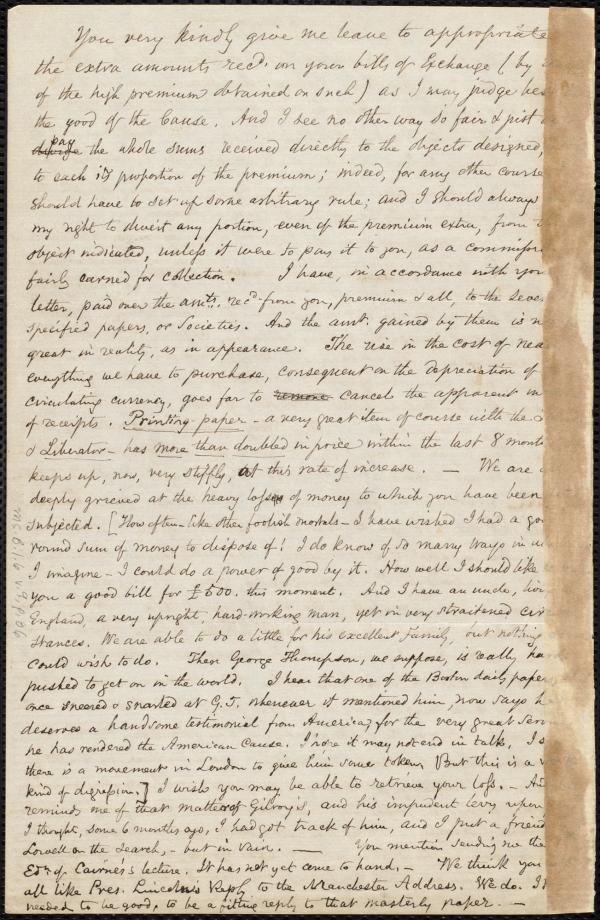 You very kindly give me leave to appropriate
the extra amounts recd. on your bills of Exchange (by
of the high premium obtained on such) as I may judge bes
the good of the Cause. And I see no other way so fair & just
pay
the whole sums received directly to the objects designed,
to each its proportion of the premium; indeed, for any other course
should have to set up some arbitrary rule; and I should always
my right to divert any portion, even of the premium extra, from
object indicated, unless it were to pay it to you, as a commission
fairly earned for collection. I have, in accordance with your
letter, paid over the amts. recd. from you, premium & all, to the seve
specified papers, or Societies. And the amt. gained by them is n
great in reality, as in appearance. The rise in the cost of nea
everything we have to purchase, consequent on the depreciation of
circulating currency, goes far to remove cancel the apparent in
of receipts. Printing-paper - a very great item of course with the
& Liberator - has more than doubled in price within the last 8 month
keeps up, now, very stiffly, at this rate of increase. — We are
deeply grieved at the heavy losses of money to which you have been
subjected. [How often - like other foolish mortals - I have wished I had a go
round sum of money to dispose of! I do know of so many ways in w
I imagine - I could do a power of good by it. How well I should like
you a good bill for £500. this moment. And I have an uncle, livi
England, a very upright, hard-working man, yet in very straitened cir
stances. We are able to do a little for his excellent family, but nothing
could wish to do. Then George Thompson, we suppose, is really har
pushed to get on in the world. I hear that one of the Boston daily papers
once sneered & snarled at G.T. whenever it mentioned him, now says he
deserves a handsome testimonial from America, for the very great serv
he has rendered the American Cause. I hope it may not end in talk. I s
there is a movement in London to give him some token. But this is a
kind of digression.] I wish you may be able to retrieve your loss. - And
reminds me of that matter of Gilroy's, and his impudent levy upon
I thought, some 6 months ago, I had got track of him, and I put a friend
Lowell on the search, - but in vain. — You mention sending me the
Edn. of Cairnes's lecture. It has not yet come to hand. - We think you
all like Pres. Lincoln's Reply to the Manchester Address. We do. I
needed to be good, to be a fitting reply to that masterly paper. —
Ms.B.1.6 v.9, p.06